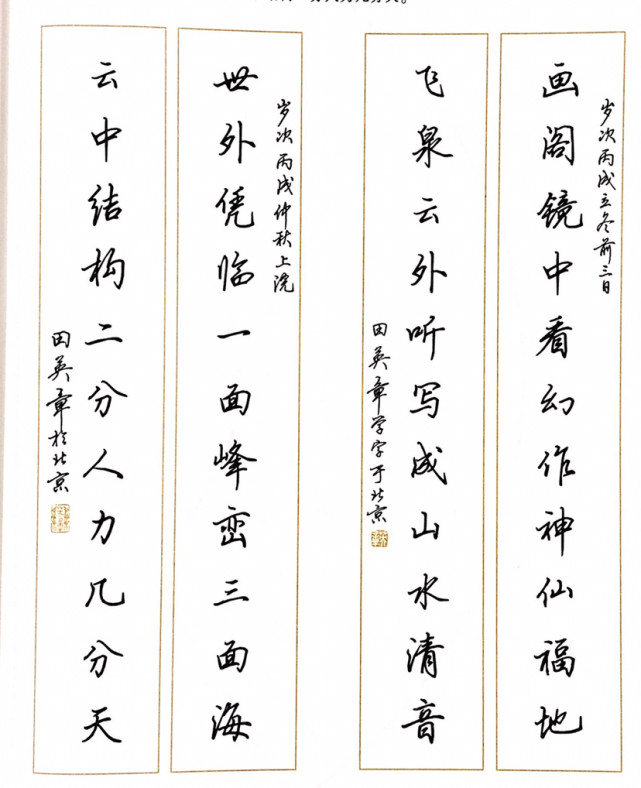 画阁镜中看幻作神仙福地
岁次丙戌立冬前三日
飞泉云外听写成山水清音
田英章学字于北京
世外凭临一面峰峦三面海
岁次丙戌仲秋上浣
云中结构二分人力几分天
田英章於北京